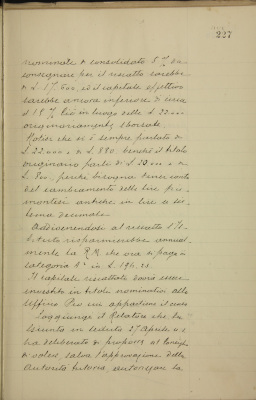 227
nominale di consolidato 5% da
consegnare per il riscatto sarebbe
di L. 17.600, ed il capitale effettivo
sarebbe ancora inferiore di circa
il 15% Ciò in luogo delle L. 22.000
originariamente sborsate.
Notisi che si è sempre parlato di
L. 22.000 e di L. 880 benchè il titolo
originario parli di L. 20.000 e di
L. 800, perchè bisogna tener conto
del cambiamento delle lire pie-
montesi antiche in lire a si-
stema decimale.
Addivenendosi al riscatto l'Is-
tituto risparmierebbe annual-
mente la R.M. che ora si paga in
categoria A in L.
Il capitale riscattato sarà
investito in titoli nominativi alle
Opere Pie cui appartiene il
Soggiunge il Relatore che la
Giunta in seduta 27 Aprile u.s.
ha deliberato di proporre al Consiglio
di volere, salva l'approvazione della
Autorità tutoria, autorizzare la